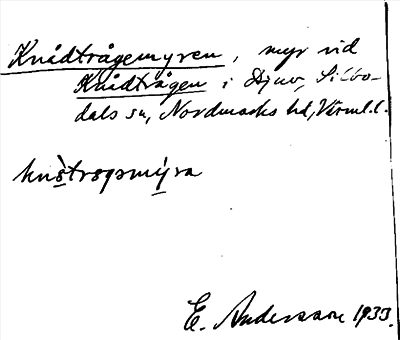 Knådtrågemyren, myr vid
Knådtrågen i Djuv, Silbo-
dals sn, Nordmarks hd, Värml. l.
knòtrogsmýra
E. Andersson 1933.